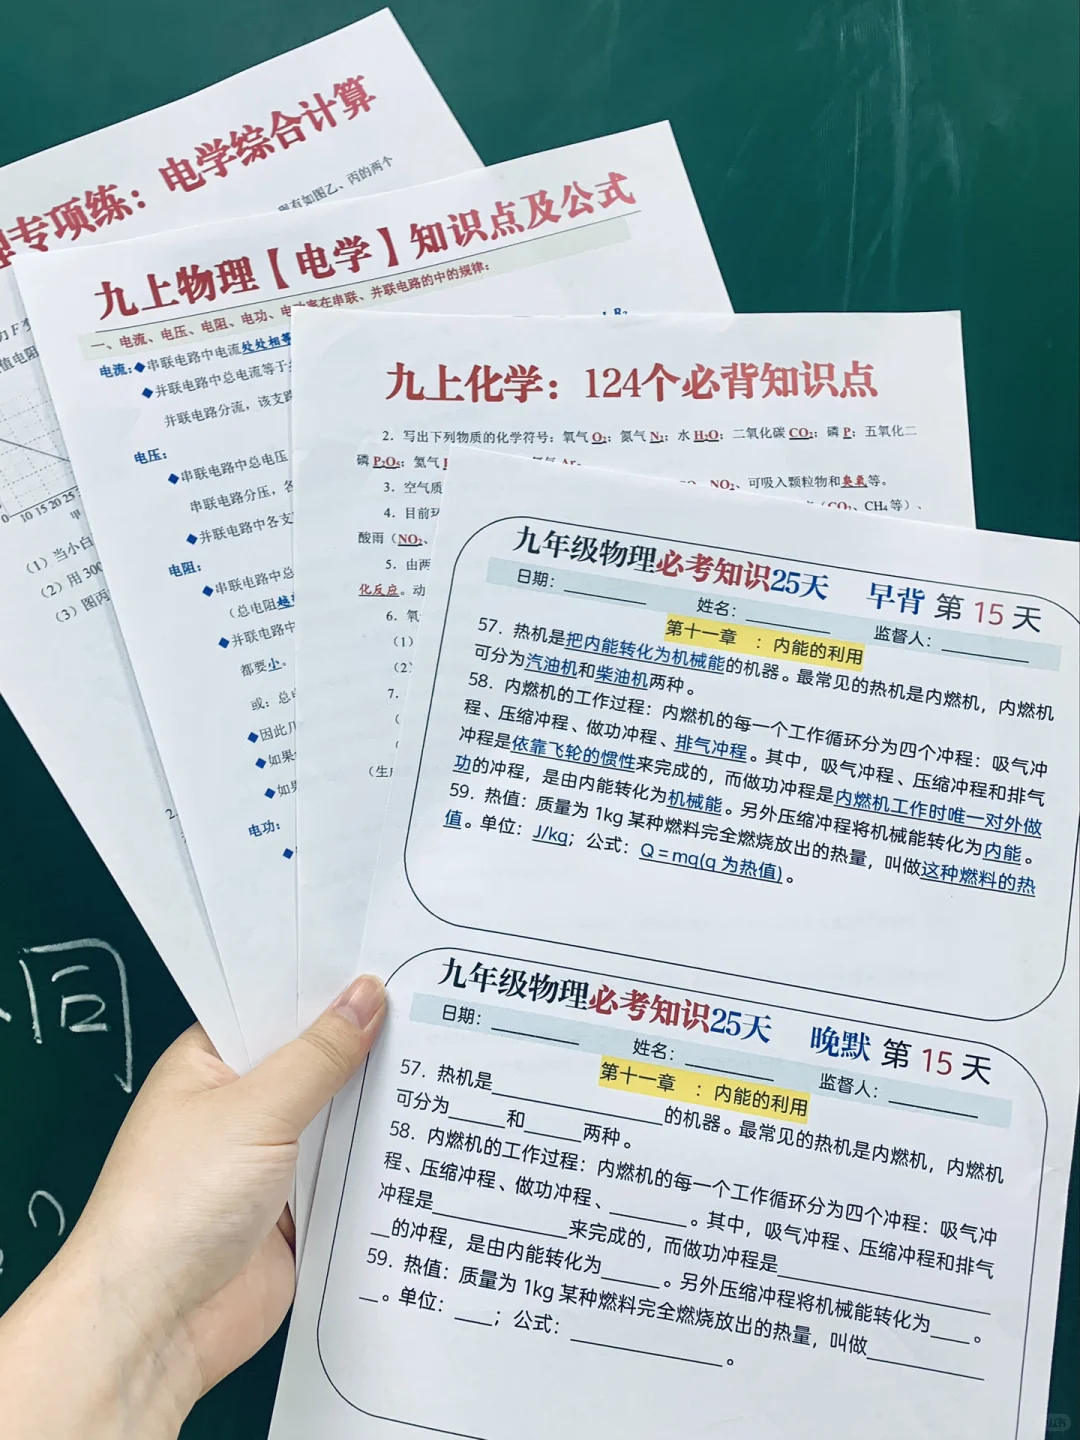 专项练：电学综合计算
现有如图乙、丙的两个
值电阻
0 10 15 20 25
甲
（1）当小白
（2）用300
（3）图丙
九上物理【电学】知识点及公式
一、电流、电压、电阻、电功、电功率在串联、并联电路的中的规律：
电流：◆串联电路中电流处处相等
◆并联电路中总电流等于
并联电路分流，该支路
电压：
◆串联电路中总电压
串联电路分压，各
◆并联电路中各支
电阻：
◆串联电路中总
（总电阻越
◆并联电路中
都要小。
或：总电
◆因此几
◆如果
◆如果
电功：
九上化学：124个必背知识点
2．写出下列物质的化学符号：氧气 O₂；氮气 N₂；水 H₂O；二氧化碳 CO₂；磷 P；五氧化二
磷 P₂O₅；氦气
3．空气质 NO₂、可吸入颗粒物和臭氧等。
4．目前 （CO₂、CH₄等）、
酸雨（NO₂、
5．由两
化反应。动
6．氧
（1）
（2）
7．
九年级物理必考知识25天 早背 第 15 天
日期：______ 姓名：______ 监督人：______
第十一章 ：内能的利用
57．热机是把内能转化为机械能的机器。最常见的热机是内燃机，内燃机
可分为汽油机和柴油机两种。
58．内燃机的工作过程：内燃机的每一个工作循环分为四个冲程：吸气冲
程、压缩冲程、做功冲程、排气冲程。其中，吸气冲程、压缩冲程和排气
冲程是依靠飞轮的惯性来完成的，而做功冲程是内燃机工作时唯一对外做
功的冲程，是由内能转化为机械能。另外压缩冲程将机械能转化为内能。
59．热值：质量为 1kg 某种燃料完全燃烧放出的热量，叫做这种燃料的热
值。单位：J/kg；公式：Q＝mq(q 为热值)。
九年级物理必考知识25天 晚默 第 15 天
日期：______ 姓名：______ 监督人：______
第十一章 ：内能的利用
57．热机是____________的机器。最常见的热机是内燃机，内燃机
可分为____和____两种。
58．内燃机的工作过程：内燃机的每一个工作循环分为四个冲程：吸气冲
程、压缩冲程、做功冲程、______。其中，吸气冲程、压缩冲程和排气
冲程是__________来完成的，而做功冲程是________________
__的冲程，是由内能转化为____。另外压缩冲程将机械能转化为___。
59．热值：质量为 1kg 某种燃料完全燃烧放出的热量，叫做_________
__。单位：___；公式：___________。
同